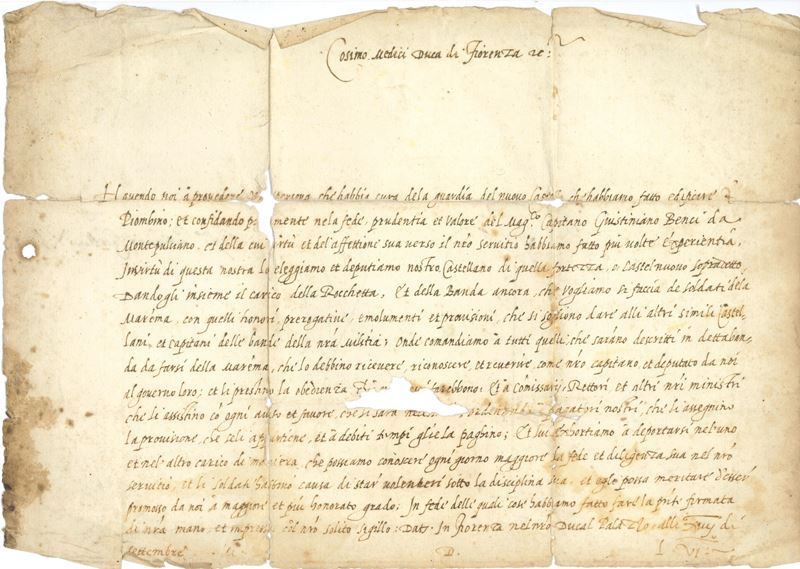 Cosimo Medici Duca di Fiorenza
Havendo noi à provedere persona che habbia cura dela guardia del nuovo che habbiamo fatto edificare
Piombino; et confidando nela fede, prudentia et valore del Mag.co Capitano Giustiniano Benci da
Montepulciano, et della et del'affettione sua verso il nro servitio habbiamo fatto più volte experientia,
di questa nostra lo eleggiamo et deputiamo nostro Castellano di quella fortezza, o Castel nuovo sopradetto,
Dandogli insieme il carico della Rocchetta, et della Banda ancora, che vogliamo si faccia de soldati dela
Marema, con quelli honori, prerogative, emolumenti et provisioni, che si sogliono dare alli altri simili Castel-
lani, et capitani delle bande della nra Militia; Onde comandiamo à tutti quelli, che sarano descritti in detta ban-
da da farsi della Marema, che lo debbino ricevere, riconoscere, et reverire, come nro capitano, et deputato da noi
al governo loro; et li prestino la obedienza farebbono; Et à Comissarij, Rettori et altri nri ministri
che li assistino co ogni aiuto et favore, nostri, che li assegnino
la provisione, che seli et à debiti tempi gliela paghino; Et lui exhortiamo à deportarsi nel uno
et nel altro carico di che possiamo conoscere ogni giorno maggiore la fede et diligenza sua nel nro
servitio, et li soldati causa di star volentieri sotto la disciplina sua, et egli possa meritare d'esser
promosso da noi à maggiore et più honorato grado; In fede delle quali cose habbiamo fatto fare la pnte firmata
di nra mano, et impressa col nro solito sigillo: Dat. In Fiorenza nel nro Ducal Palazzo alli di
settembre D.